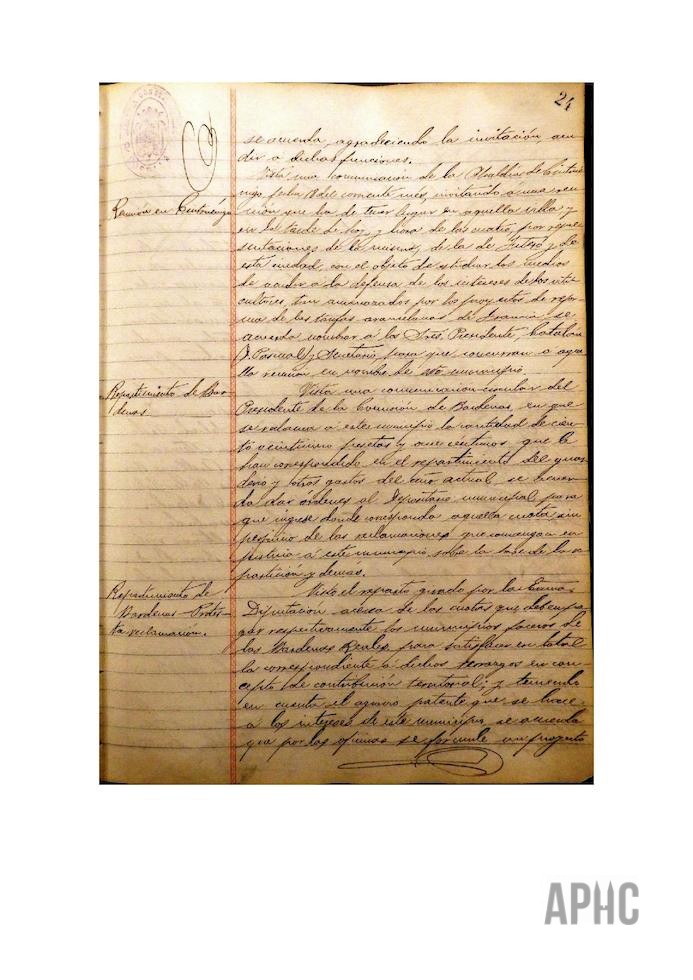 24
se acuerda, agradeciendo la invitación, acu-
dir a dichas funciones.
Vista una comunicación de la Alcaldía de Cintrué-
nigo, fecha 18 del corriente mes, invitando a una reu-
Reunión en Cintruénigo
nión que ha de tener lugar en aquella villa y
en la tarde de hoy, y hora de las cuatro, por repre-
sentaciones de la misma, de la de Fitero y de
esta ciudad, con el objeto de estudiar los medios
de acudir a la defensa de los intereses de los viti-
cultores, tan amenazados por los proyectos de refor-
ma de las tarifas arancelarias de Francia; se
acuerda nombrar a los Sres. Presidente, Catalán
(D. Pascual) y Secretario, para que concurran a aque-
lla reunión en nombre de este municipio.
Repartimiento de Bar-
denas
Vista una comunicación-circular del
Presidente de la Comisión de Bardenas, en que
se reclama a este municipio la cantidad de cien-
to veintiuna pesetas y once centimos, que le
han correspondido en el repartimiento del guar-
derio y otros gastos del año actual, se acuer-
da dar ordenes al Depositario municipal para
que ingrese donde corresponda aquella cuota sin
perjuicio de las reclamaciones que convengan en
justicia a este municipio, sobre la base de la re-
partición y demás.
Repartimiento de
Bardenas-Protes-
ta reclamación.
Visto el reparto girado por la Excma.
Diputación acerca de las cuotas que deben pa-
gar respectivamente los municipios faceros de
las Bardenas Reales, para satisfacer en total
la correspondiente a dichos terrazgos en con-
cepto de contribución territorial; y teniendo
en cuenta el agravio patente que se hace
a los intereses de este municipio, se acuerda
que por las oficinas se formule un proyecto
APHC